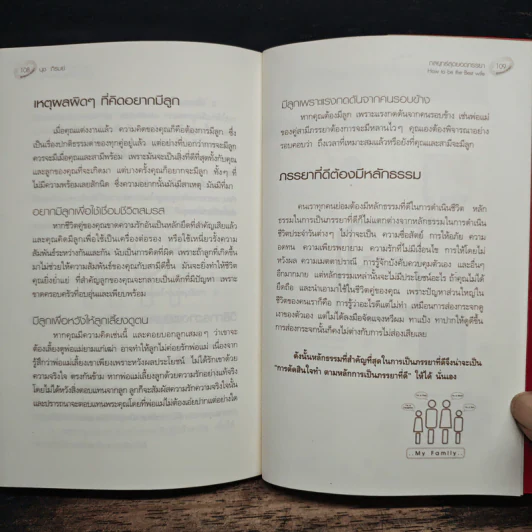 108
นุช ภิรมย์
เหตุผลผิดๆ ที่คิดอยากมีลูก
เมื่อคุณแต่งงานแล้ว ความคิดของคุณก็คือต้องการมีลูก ซึ่ง
เป็นเรื่องปกติธรรมดาของทุกคู่อยู่แล้ว แต่อย่างที่บอกว่าการจะมีลูก
ควรจะมีเมื่อคุณและสามีพร้อม เพราะมันจะเป็นสิ่งที่ดีที่สุดทั้งกับคุณ
และลูกของคุณที่จะเกิดมา แต่บางครั้งคุณก็อยากจะมีลูก ทั้งๆ ที่
ไม่มีความพร้อมเลยสักนิด ซึ่งความอยากนั้นมันมีสาเหตุ มันมีที่มา
อยากมีลูกเพื่อใช้เชื่อมชีวิตสมรส
หากชีวิตคู่ของคุณขาดความรักอันเป็นหลักยึดที่สำคัญเสียแล้ว
และคุณคิดมีลูกเพื่อใช้เป็นเครื่องต่อรอง หรือใช้เหนี่ยวรั้งความ
สัมพันธ์ระหว่างกันและกัน นับเป็นการคิดที่ผิด เพราะถ้าลูกที่เกิดขึ้น
มาไม่ช่วยให้ความสัมพันธ์ของคุณกับสามีดีขึ้น มันจะยิ่งทำให้ชีวิต
คุณยิ่งย่ำแย่ ที่สำคัญลูกของคุณจะกลายเป็นเด็กที่มีปัญหา เพราะ
ขาดครอบครัวที่อบอุ่นและเพียบพร้อม
มีลูกเพื่อหวังให้ลูกเลี้ยงดูตน
หากคุณมีความคิดเช่นนี้ และคอยบอกลูกเสมอๆ ว่าเขาจะ
ต้องเลี้ยงดูพ่อแม่ยามแก่เฒ่า อาจทำให้ลูกไม่ค่อยรักพ่อแม่ เนื่องจาก
รู้สึกว่าพ่อแม่เลี้ยงเขาเพียงเพราะหวังผลประโยชน์ ไม่ได้รักเขาด้วย
ความจริงใจ ตรงกันข้าม หากพ่อแม่เลี้ยงลูกด้วยความรักอย่างแท้จริง
โดยไม่ได้หวังสิ่งตอบแทนจากลูก ลูกก็จะสัมผัสความรักความจริงใจนั้น
และปรารถนาจะตอบแทนพระคุณโดยที่พ่อแม่ไม่ต้องเอ่ยปากแต่อย่างใด
109
How to be the Best wife
มีลูกเพราะแรงกดดันจากคนรอบข้าง
หากคุณต้องมีลูก เพราะแรงกดดันจากคนรอบข้าง เช่นพ่อแม่
ของคู่สามีภรรยาต้องการจะมีหลานไวๆ คุณเองต้องพิจารณาอย่าง
รอบคอบว่า ถึงเวลาที่เหมาะสมแล้วหรือยังที่คุณและสามีจะมีลูก
ภรรยาที่ดีต้องมีหลักธรรม
คนเราทุกคนย่อมต้องมีหลักธรรมที่ดีในการดำเนินชีวิต หลัก
ธรรมในการเป็นภรรยาที่ดีก็ไม่แตกต่างจากหลักธรรมในการดำเนิน
ชีวิตประจำวันต่างๆ ไม่ว่าจะเป็น ความซื่อสัตย์ การให้อภัย ความ
อดทน ความเพียรพยายาม ความรักที่ไม่มีเงื่อนไข การให้โดยไม่
หวังผล ความเมตตาปรานี การรู้จักบังคับควบคุมตัวเอง และอื่นๆ
อีกมากมาย แต่หลักธรรมเหล่านั้นจะไม่มีประโยชน์อะไร ถ้าคุณไม่ได้
ยึดถือ และนำเอามาใช้ในชีวิตคู่ของคุณ เพราะปัญหาส่วนใหญ่ใน
ชีวิตของคนเราก็คือ การรู้ว่าอะไรดีแต่ไม่ทำ เหมือนการส่องกระจกดู
เงาของตัวเอง แต่ไม่ได้ลงมือจัดแจงหวีผม ทาแป้ง ทาปากให้ดูดีขึ้น
การส่องกระจกนั้นก็คงไม่ต่างกับการไม่ส่องเสียเลย
ดังนั้นหลักธรรมที่สำคัญที่สุดในการเป็นภรรยาที่ดีจึงน่าจะเป็น
"การตัดสินใจทำ ตามหลักการเป็นภรรยาที่ดี" ให้ได้ นั่นเอง
..My Family..